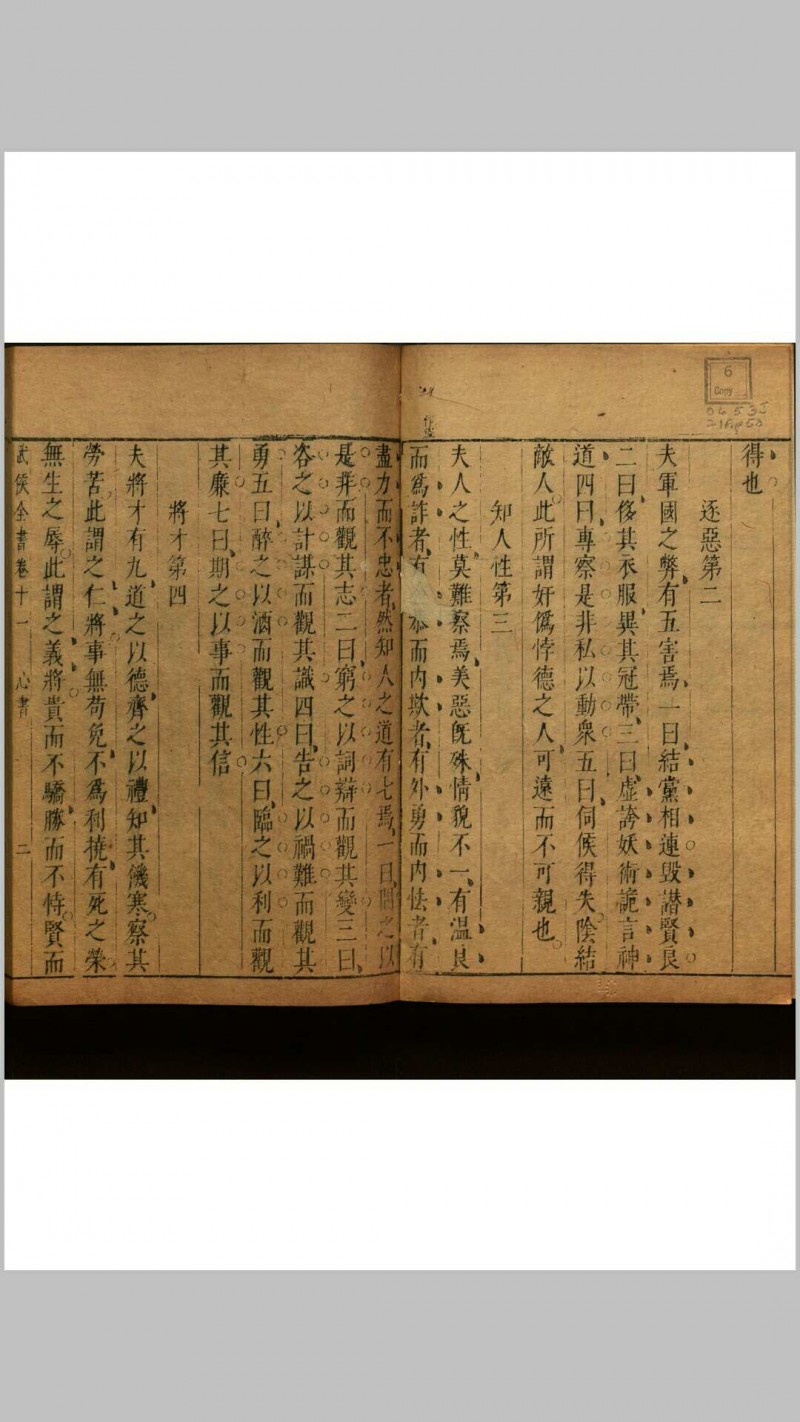 得也
逐惡第二
夫軍國之弊有五害焉一曰結黨相連毀譖賢良
二曰侈其衣服異其冠帶三曰虛誇妖術詭言神
道四曰專察是非私以動衆五曰伺候得失陰結
敵人此所謂奸僞悖德之人可遠而不可親也
知人性第三
夫人之性莫難察焉美惡既殊情貌不一有溫良
而爲詐者有 而內欺者有外勇而內怯者有
盡力而不忠者然知人之道有七焉一曰間之以
是非而觀其志二曰窮之以詞辯而觀其變三曰
咨之以計謀而觀其識四曰告之以禍難而觀其
勇五曰醉之以酒而觀其性六曰臨之以利而觀
其廉七曰期之以事而觀其信
將才第四
夫將才有九道之以德齊之以禮知其饑寒察其
勞苦此謂之仁將事無苟免不爲利撓有死之榮
無生之辱此謂之義將貴而不驕勝而不恃賢而
武侯全書卷十一 心書 二
6
Copy